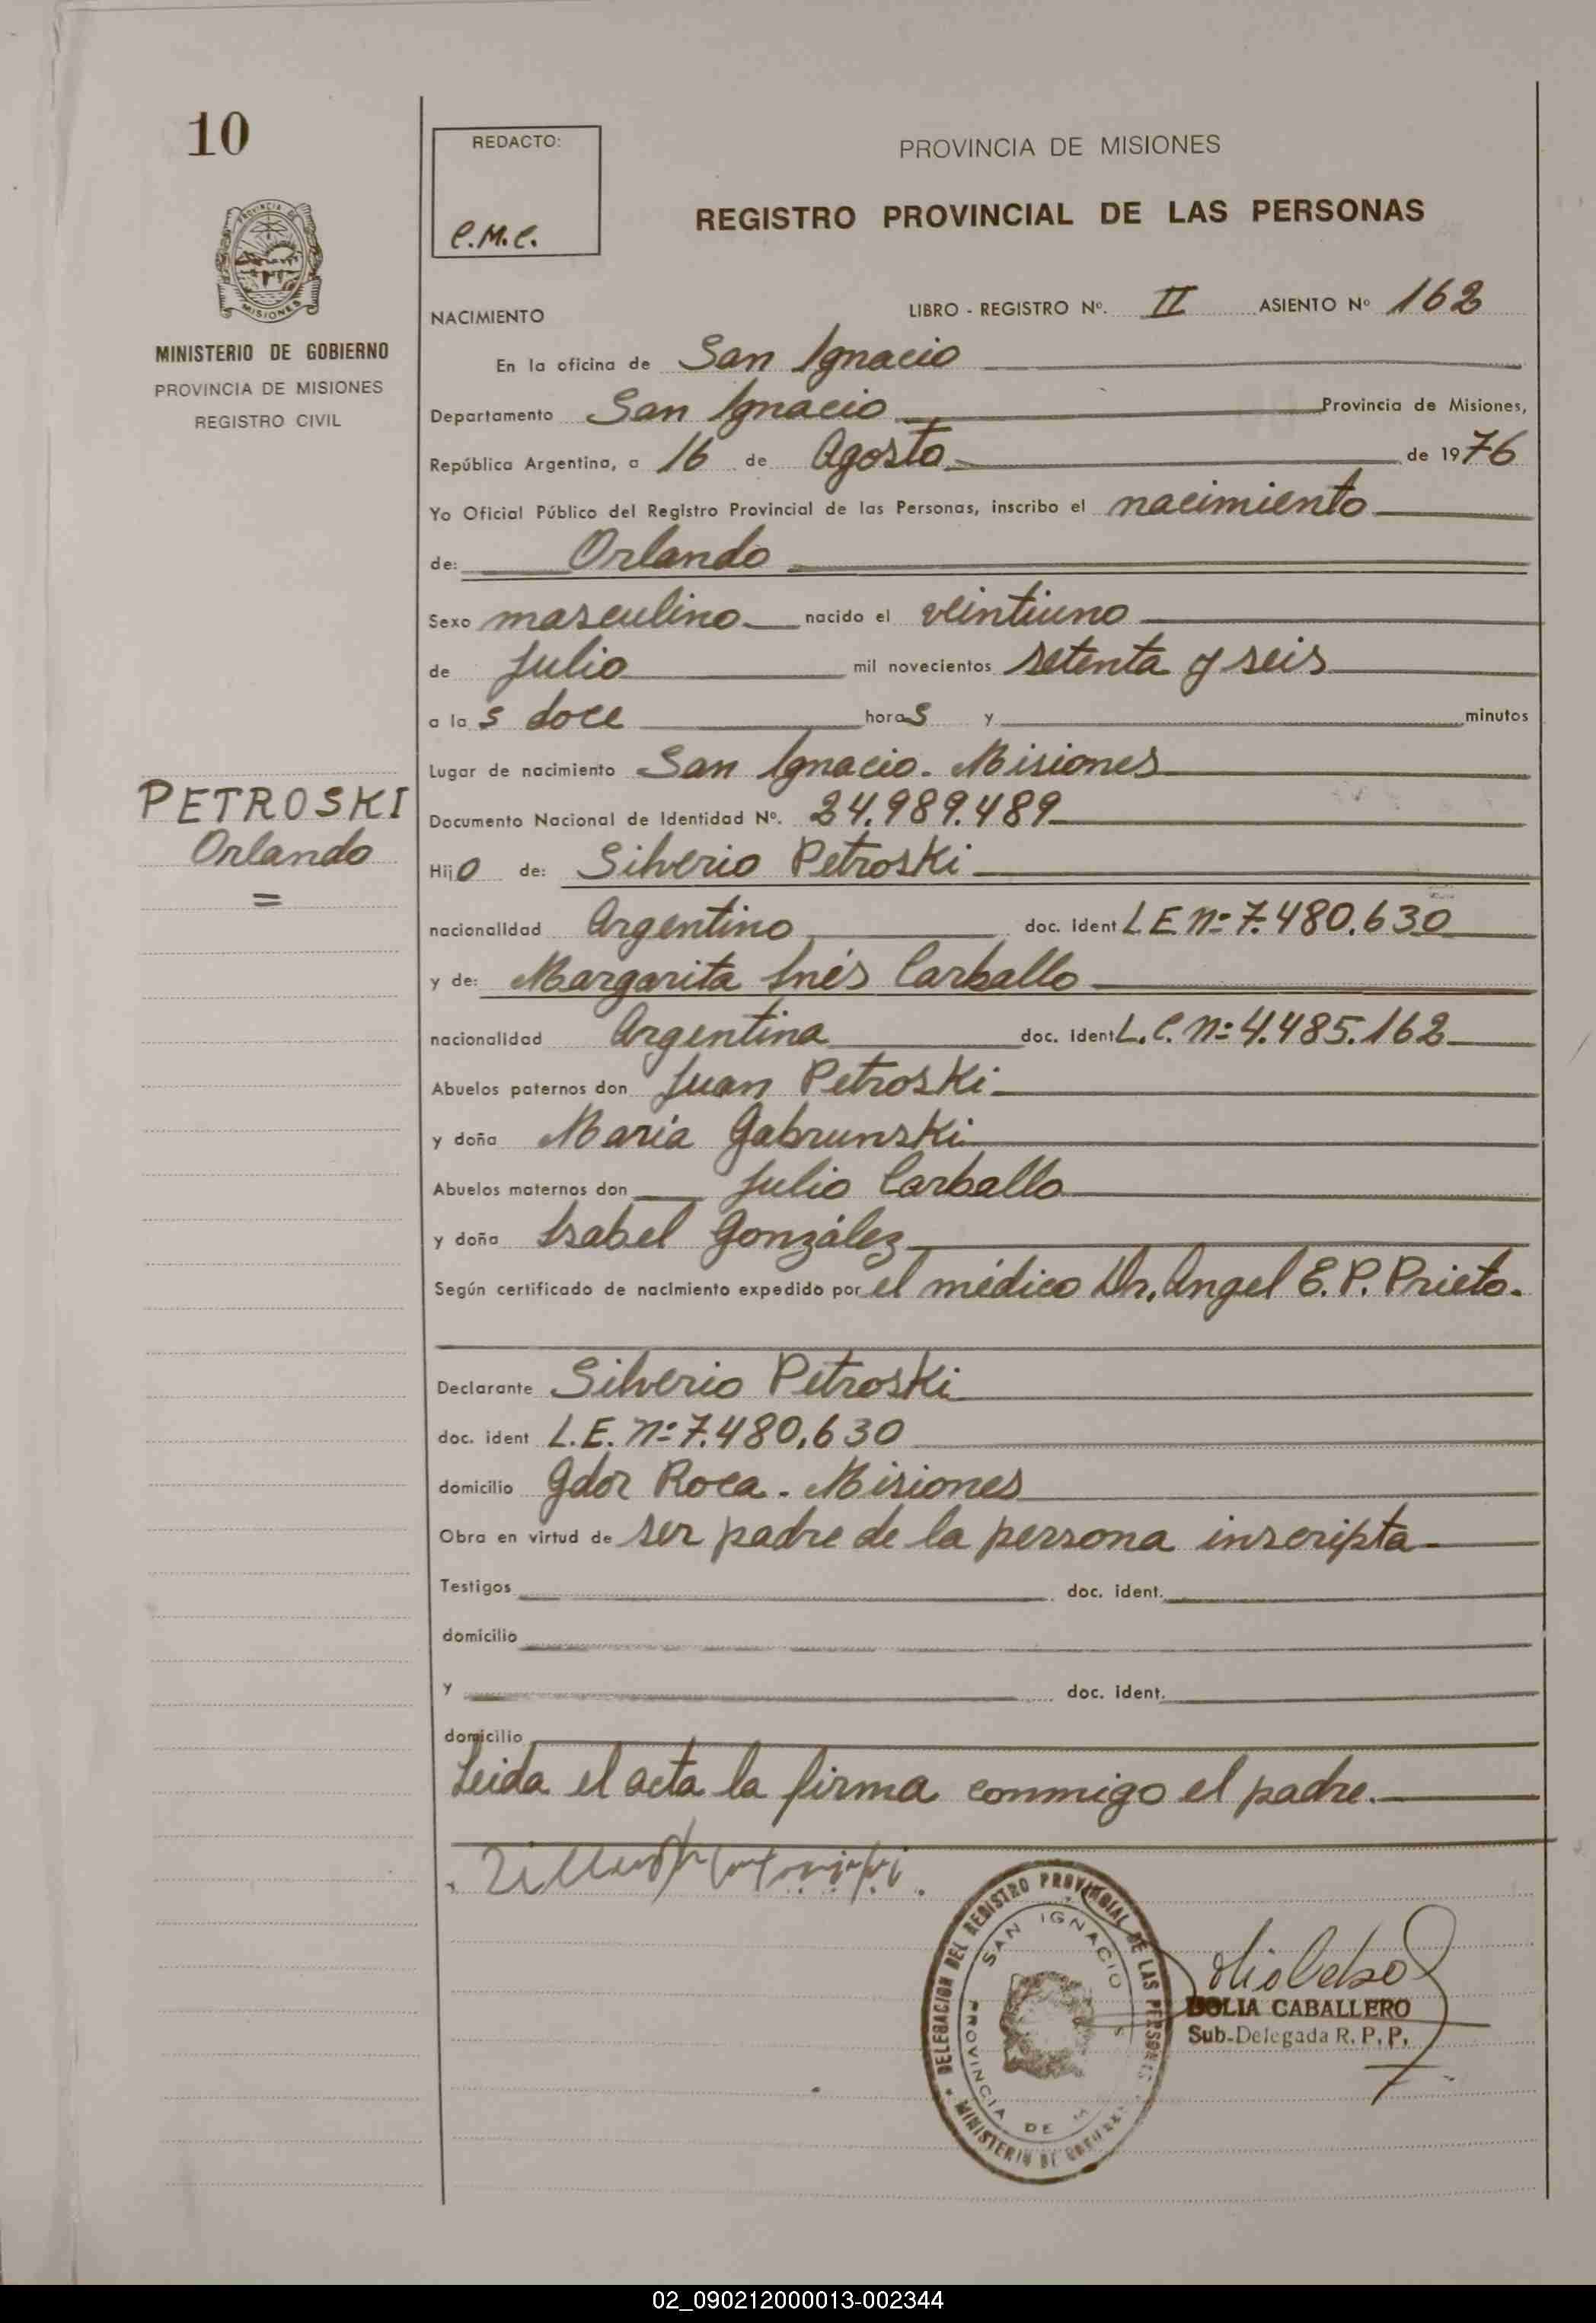 10
REDACTO:
C.M.C.
PROVINCIA DE MISIONES
REGISTRO PROVINCIAL DE LAS PERSONAS
PROVINCIA DE
MISIONES
MINISTERIO DE GOBIERNO
PROVINCIA DE MISIONES
REGISTRO CIVIL
NACIMIENTO
LIBRO - REGISTRO Nº. II ASIENTO Nº 162
En la oficina de San Ignacio
Departamento San Ignacio Provincia de Misiones,
República Argentina, a 16 de Agosto de 1976
Yo Oficial Público del Registro Provincial de las Personas, inscribo el nacimiento
de: Orlando
Sexo masculino nacido el veintiuno
de Julio mil novecientos setenta y seis
a las doce horas y minutos
Lugar de nacimiento San Ignacio. Misiones
PETROSKI
Orlando
=
Documento Nacional de Identidad Nº. 24.989.489
Hijo de: Silverio Petroski
nacionalidad Argentino doc. ident LE nº 7.480.630
y de: Margarita Inés Carballo
nacionalidad Argentina doc. ident L.C. nº 4.485.162
Abuelos paternos don Juan Petroski
y doña María Gabrunski
Abuelos maternos don Julio Carballo
y doña Isabel González
Según certificado de nacimiento expedido por el médico Dr. Angel E. P. Prieto.
Declarante Silverio Petroski
doc. ident L.E. nº 7.480.630
domicilio Gdor Roca. Misiones
Obra en virtud de ser padre de la persona inscripta
Testigos doc. ident.
domicilio
y doc. ident.
domicilio
Leida el acta la firma conmigo el padre.
DELEGACION DEL REGISTRO PROVINCIAL DE LAS PERSONAS
SAN IGNACIO
PROVINCIA DE
MINISTERIO DE
CABALLERO
Sub-Delegada R. P. P.
02_090212000013-002344